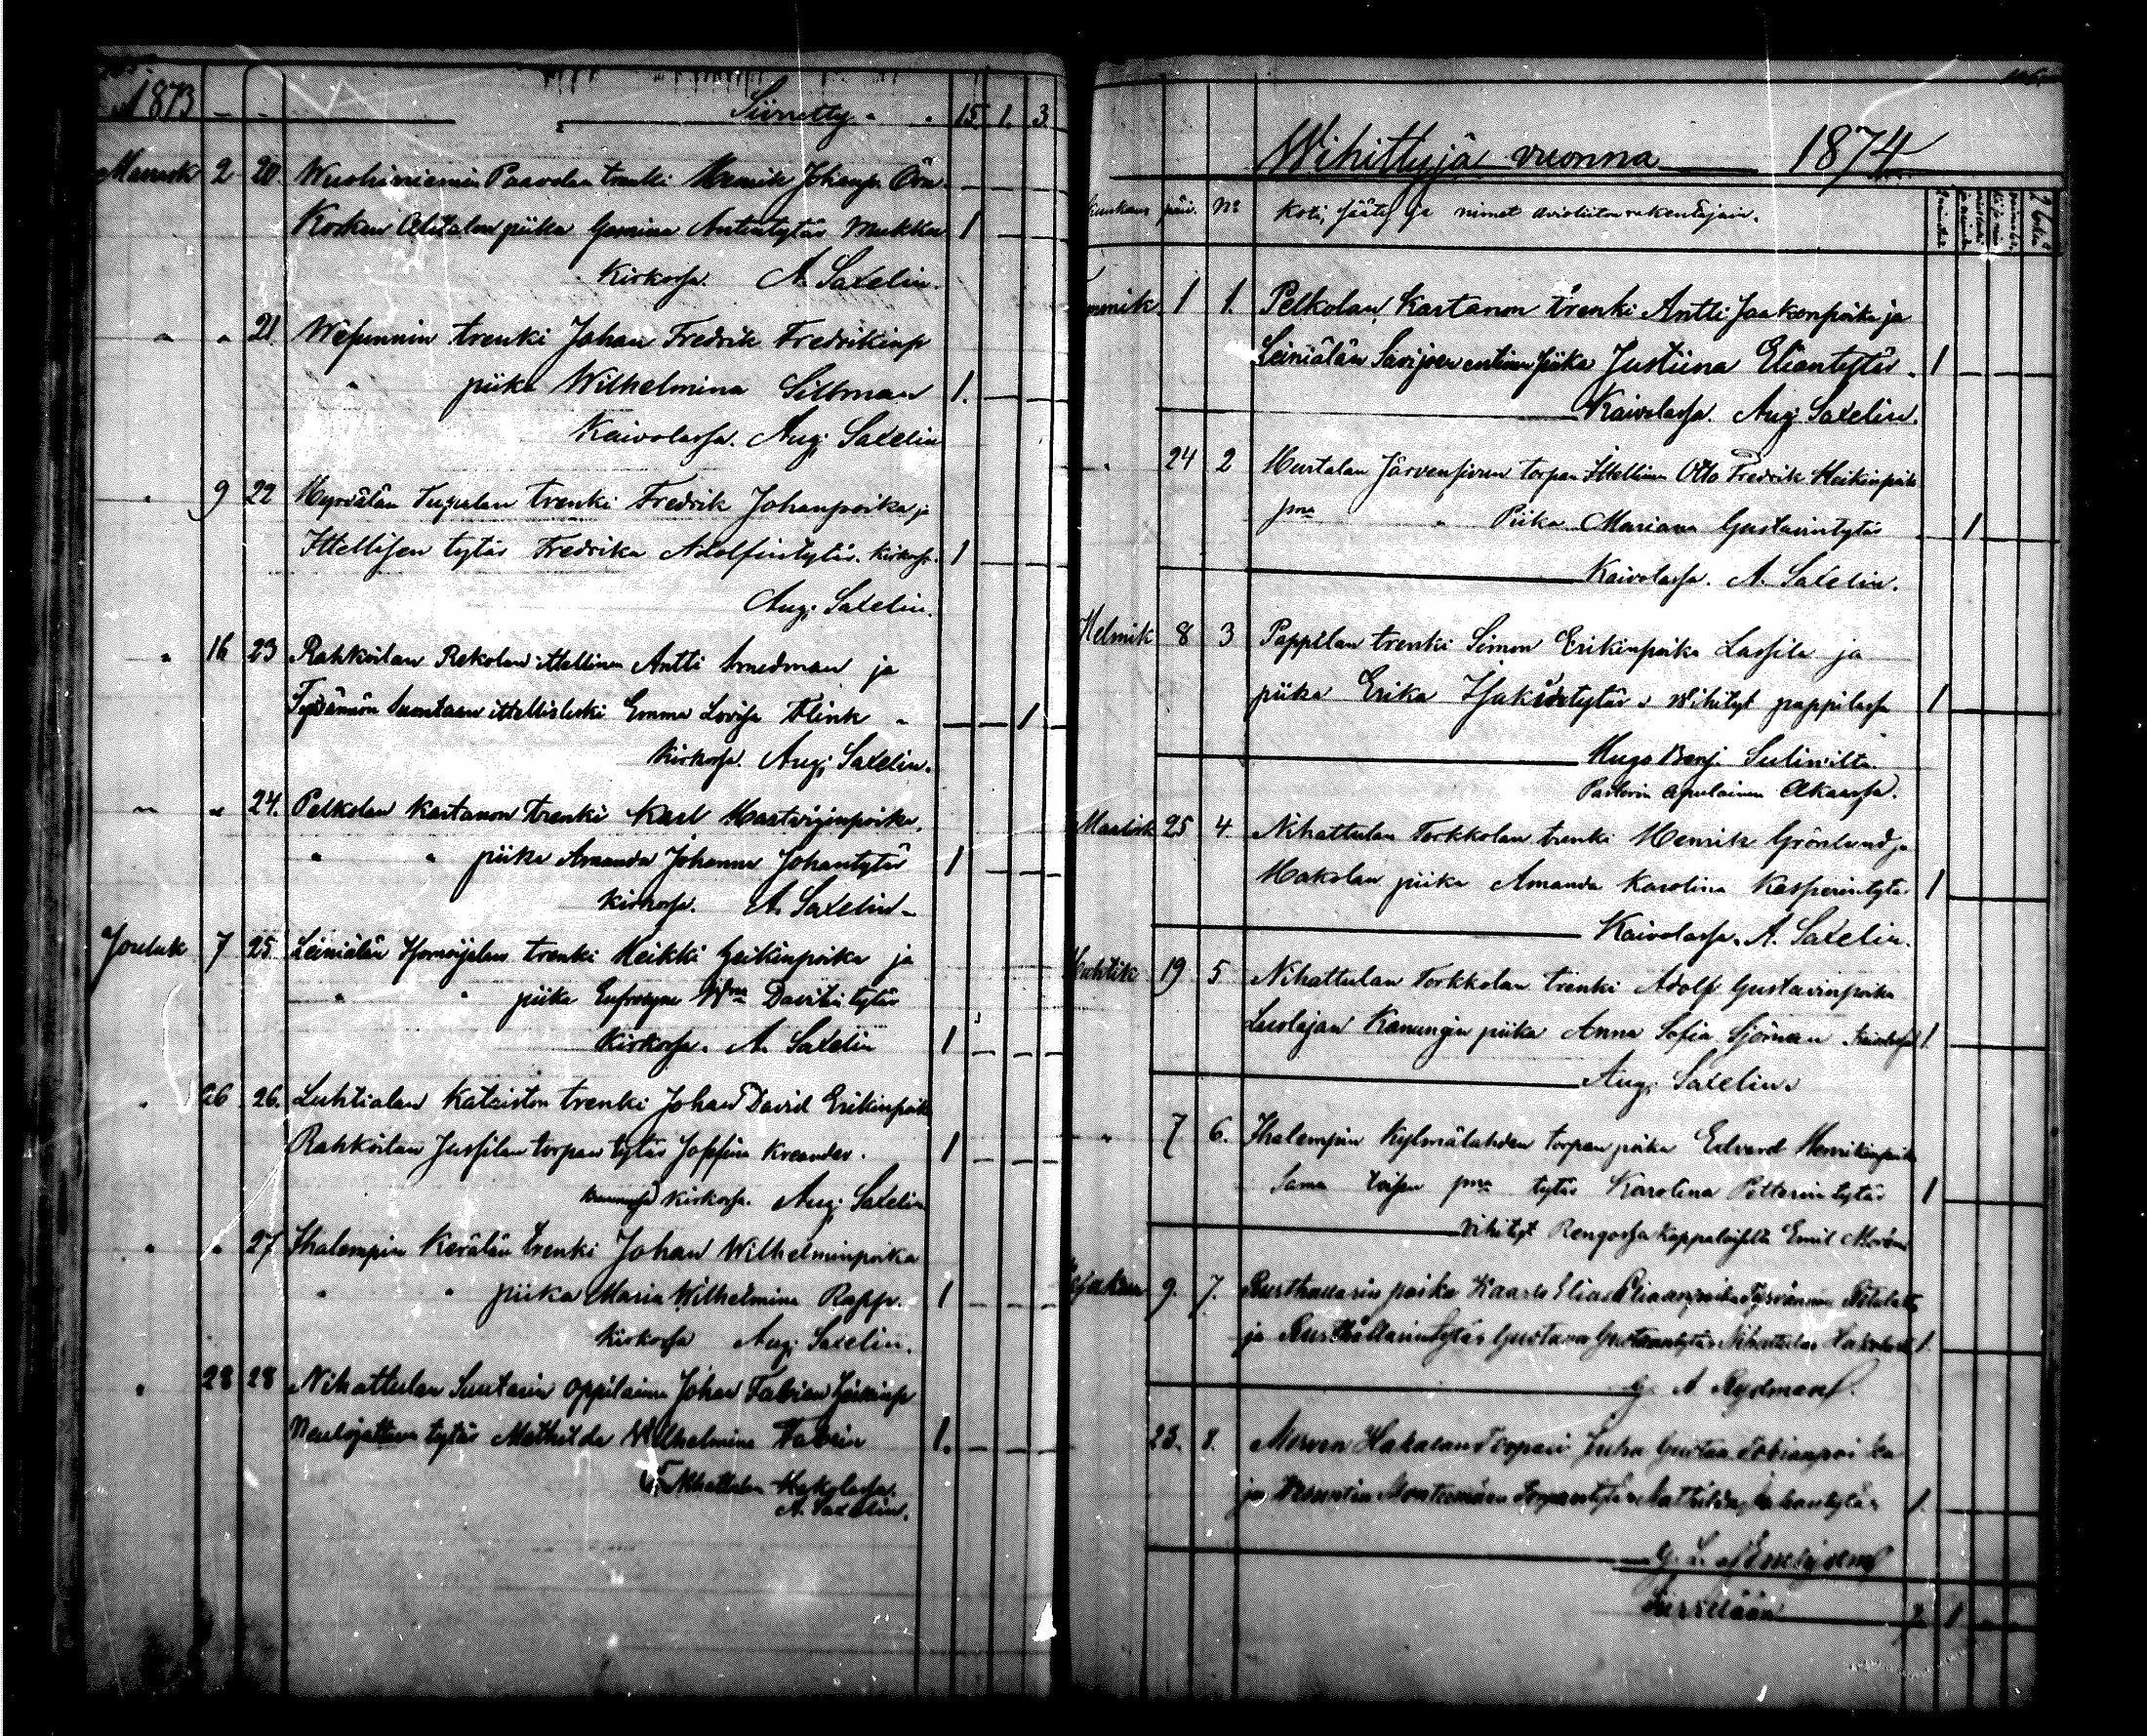 1873 - - Siirretty - . 15. 1. 3.
Marrask 2 20. Wuohiniemin Paavolan trenki Henrik Johanp. Öön
Kosken Alitalon piika Gemina Antintytär Mukka 1
Kirkossa. A. Saxelin.
" " 21 Wesunnin trenki Johan Fredrik Fredrikinp
" piika Wilhelmina Siltman 1.
Kaivolassa. Aug. Saxelin
" 9 22 Hyrvälän Tupulan trenki Fredrik Johanpoika ja
Ittellisen tytär Fredrika Adolfintytär. Kirkossa. 1
Aug. Saxelin.
" 16 23 Rahkoilan Rekolan ittellinen Antti Smedman ja
Tyrvännön ittellisleski Emma Lovisa Flink - 1
Kirkossa. Aug. Saxelin.
" " 24. Pelkolan Kartanon trenki Karl Hartviginpoika,
" " piika Amanda Johanna Johantytär 1
Kirkossa. A. Saxelin -
Jouluk 7 25. Leiniälän trenki Heikki Heikinpoika ja
" " piika Eufrosyne Davitintytär
Kirkossa. A. Saxelin 1
" 26 26. Luhtialan Katiston trenki Johan David Erikinpoika
Rahkoilan Jussilan torpan tytär Josefina Kreander. 1
kirkossa. Aug. Saxelin
" " 27 Ihalempin Kerälän trenki Johan Wilhelminpoika
" " piika Maria Wilhelmina Rapp. 1
Kirkossa Aug. Saxelin.
" 28 28 Nihattulan Suutarin oppilainen Johan Fabian
tytär Mathilda Wilhelmina 1.
Nihattulan Hakolassa.
A. Saxelin.
Wihittyjä vuonna 1874
Kuukaus päiv. No Koti, sääty ja nimet avioliiton rakentajain.
Tammik 1 1. Pelkolan Kartanon trenki Antti Jaakonpoika ja
Leiniälän Savijoen entinen piika Justiina Eliantytär. 1
Kaivolassa. Aug. Saxelin.
" 24 2 Hurtalan Järvensivun torpan Ittellinen Otto Fredrik Heikinpoika
sma " Piika Mariana Gustavintytär 1
Kaivolassa. A. Saxelin.
Helmik 8 3 Pappilan trenki Simon Erikinpoika Lassila ja
piika Erika Isakintytär. Wihityt pappilassa 1
Hugo Benj. Suliniilta
Pastorin apulainen Akaassa.
Maalisk 25 4 Nihattulan Torkkolan trenki Henrik Grönlund ja
Hakolan piika Amanda Karolina Kasperintytär 1
Kaivolassa. A. Saxelin.
Huhtik 19 5 Nihattulan Torkkolan trenki Adolf Gustavinpoika
Luolajan Kanungin piika Anna Sofia Sjöman Kaivolassa 1.
Aug. Saxelin.
" 7 6. Ihalempin Kylmälahden torpan poika Edvard Henrikinpoika
Sama toisen sma tytär Karolina Petterintytär 1
Vihityt Rengossa Kappalaiselta Emil Morén
9. 7. Rusthollarin poika Kaarle Elias Eliaanpoika Tyrvännön
ja Rusthollarin tytär Gustava Gustaantytär Nihattulan Hakolasta 1.
G. A. Rydman.
23. 8. Merven Hakalan Torpari Juha Gustaa Tobianpoika
ja Wesunnin Torpantytär Mathilda Johantytär 1.
Siirretään 7 1 -